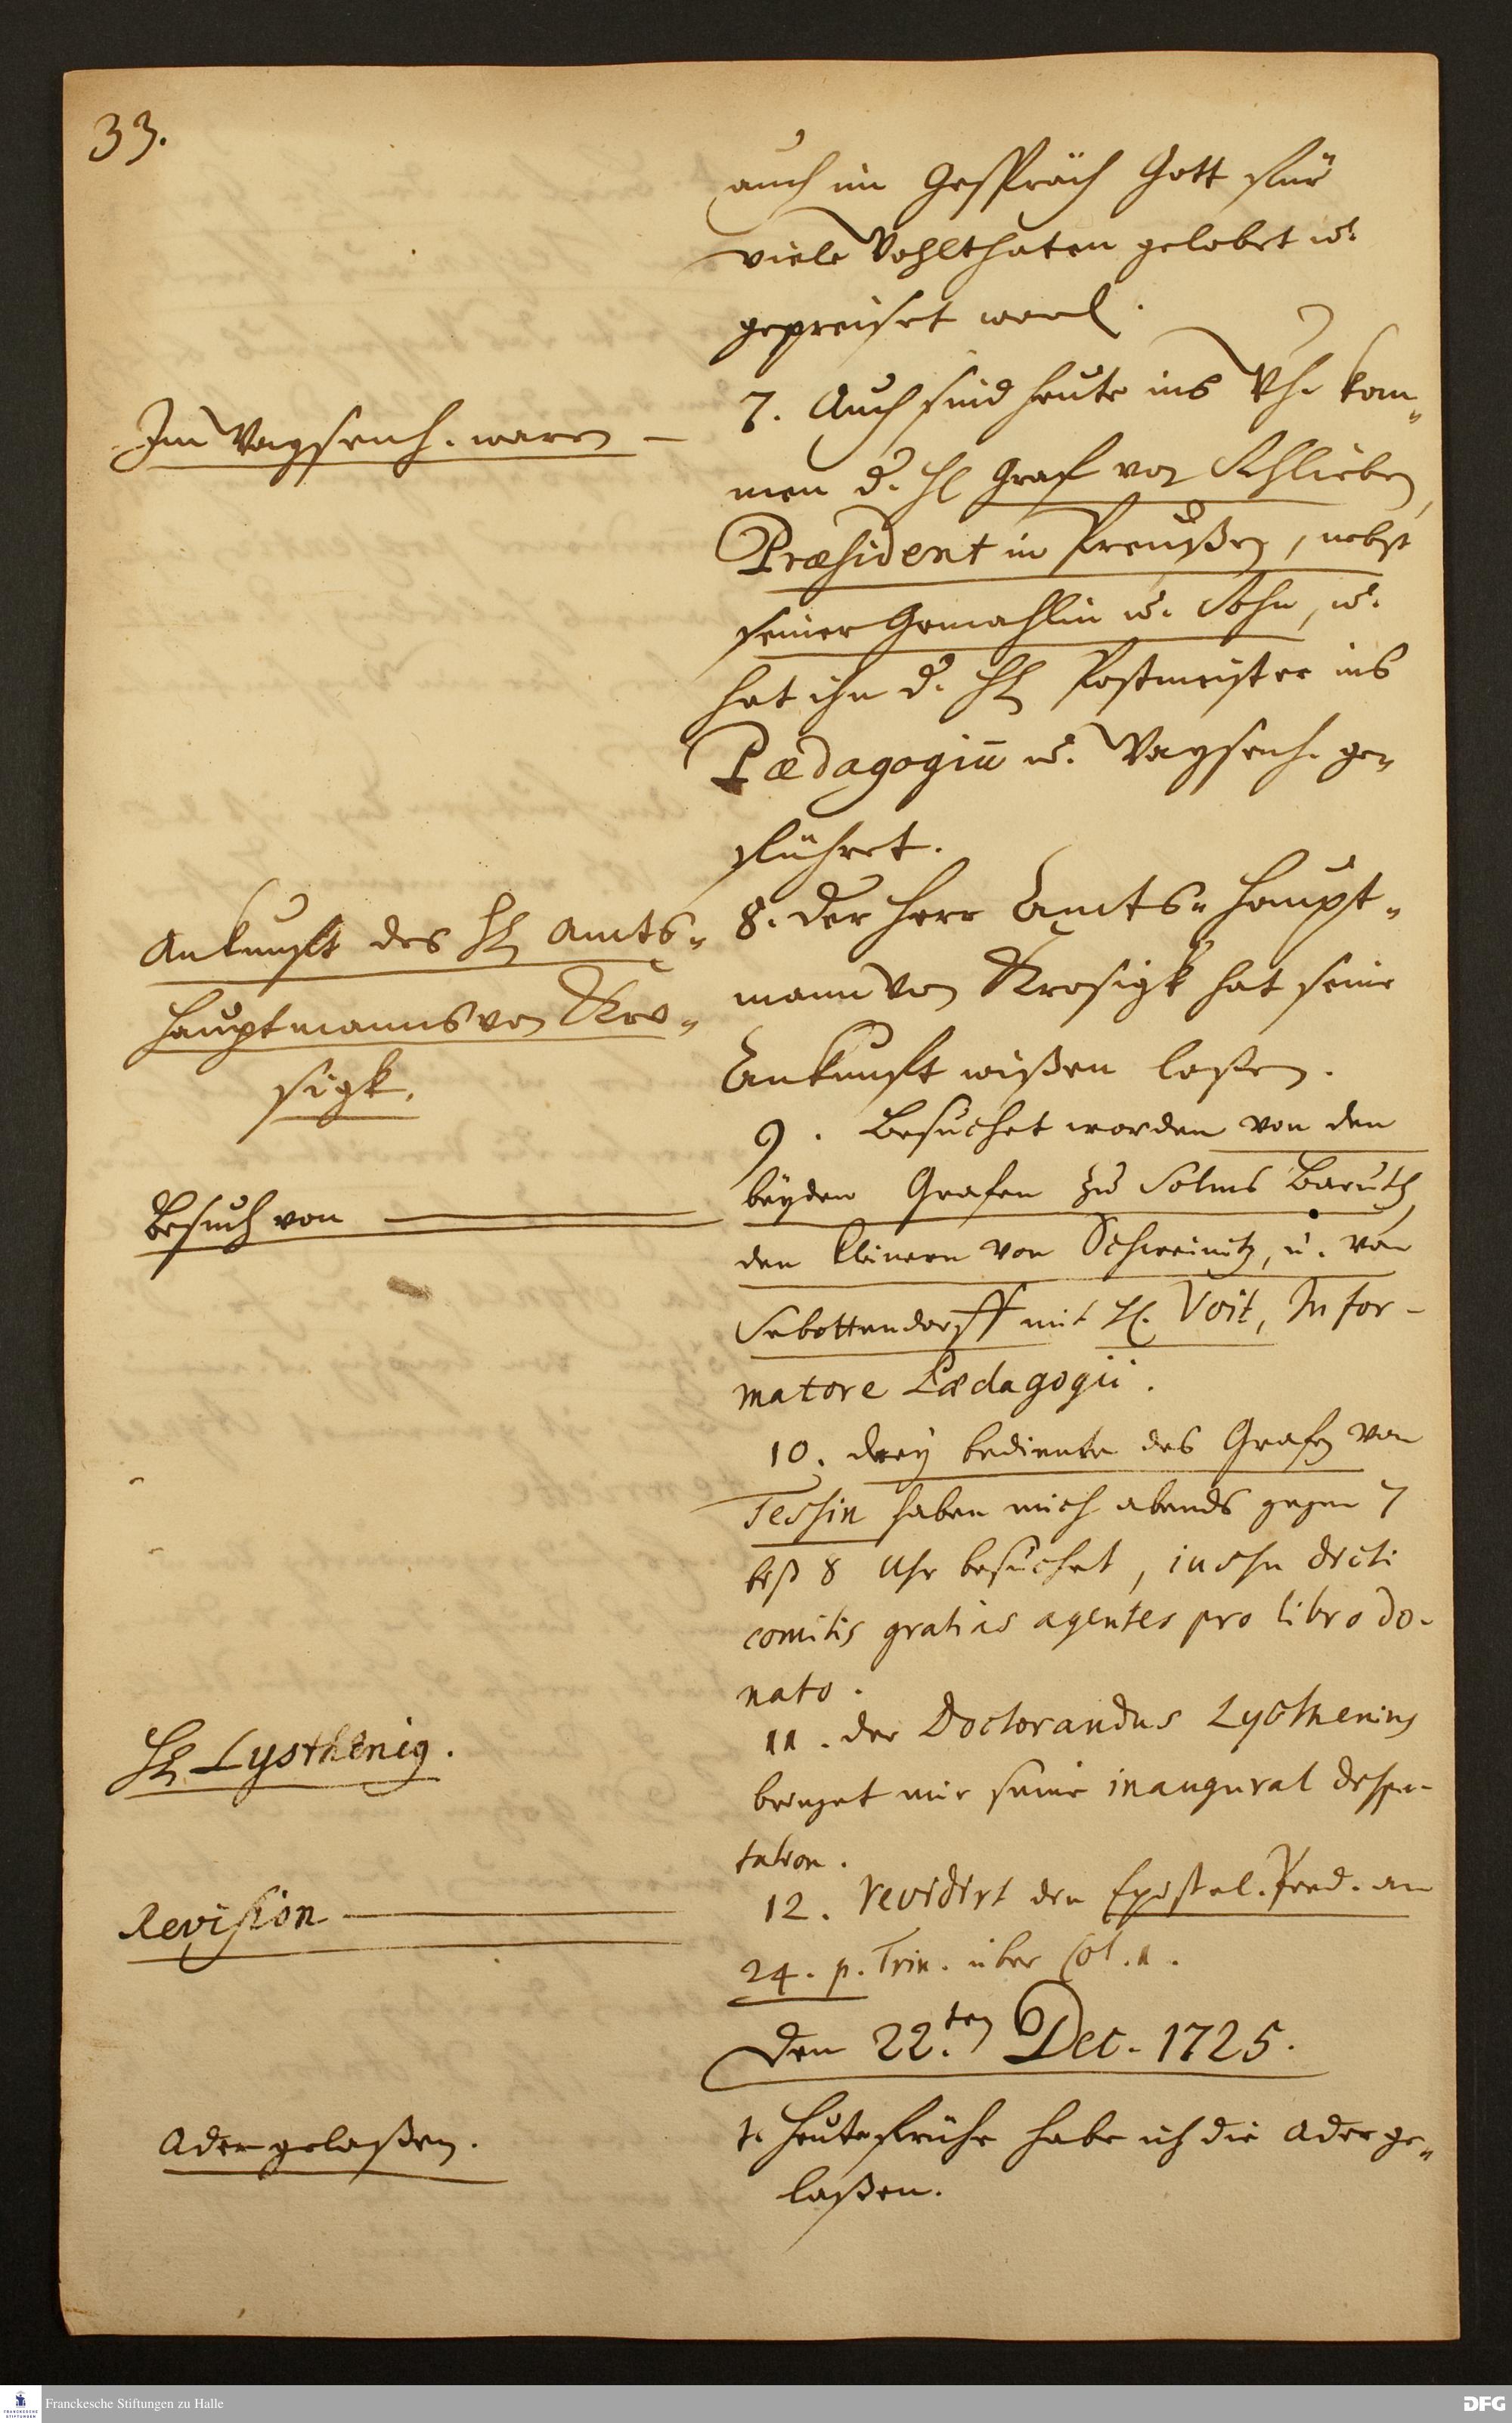 33.
auch im Gespräch Gott für
viele Wohlthaten gelobet u.
gepreiset word.
Im Waysenh. waren —
7. Auch sind heute ins Wh. kom„
men d. H. Graf von Schlieben,
Præsident in Preußen, nebst
seiner Gemahlin u. Sohn, u.
hat ihn d. H. Postmeister ins
Pædagogiū u. Waysenh. ge„
führet.
Ankunfft des H. Amts„
Hauptmanns von Kro„
sigk.
8. Der Herr Amts„Haupt„
mann von Krosigk hat seine
Ankunfft wißen laßen.
Besuch von
9. Besuchet worden von den
beyden Grafen zu Solms Baruth,
den kleinern von Schweinitz, u. von
Sebottendorff mit H. Voit, Infor-
matore Pædagogii.
10. Drey bediente des Grafen von
Tessin haben mich abends gegen 7
biß 8 Uhr besuchet, jussu dicti
comitis gratias agentes pro libro do-
nato.
H. Lysthenig.
11. der Doctorandus Lysthenius
bringet mir seine inaugural dispu-
tation.
Revision
12. revidirt die Epistol. Pred. am
24. p. Trin. über Col. 1.
Den 22.ten Dec. 1725.
Ader gelaßen.
1. Heute frühe habe ich die Ader ge„
laßen.
Franckesche Stiftungen zu Halle
DFG